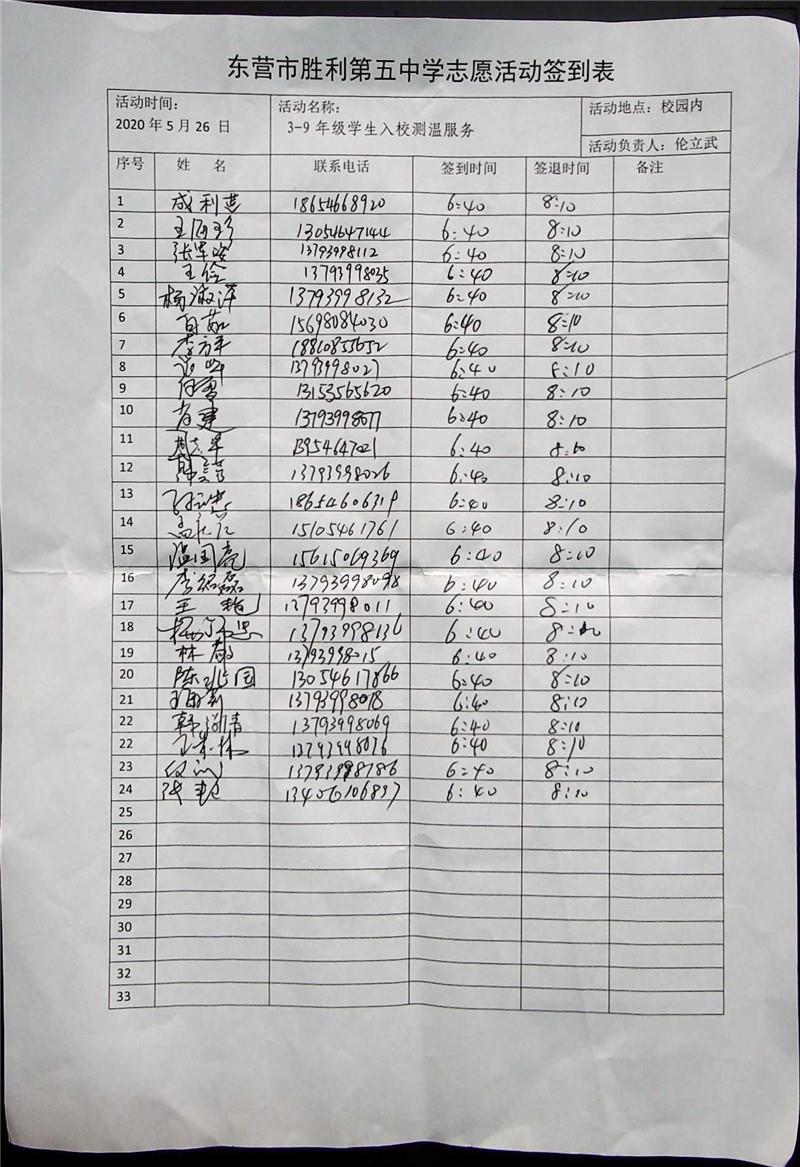 东营市胜利第五中学志愿活动签到表
活动时间： 活动名称： 活动地点：校园内
2020年5月26日 3-9年级学生入校测温服务
活动负责人：伦立武
序号 姓 名 联系电话 签到时间 签退时间 备注
1 成利莲 18654668920 6:40 8:10
2 13054647144 6:40 8:10
3 13793998112 6:40 8:10
4 王俭 13793998035 6:40 8:10
5 杨淑萍 13793998132 6:40 8:10
6 15698084030 6:40 8:10
7 李方平 18810855652 6:40 8:10
8 13793998027 6:40 8:10
9 13153565620 6:40 8:10
10 肖建 13793998077 6:40 8:10
11 6:40
12 13793998026 6:40 8:10
13 18654606319 6:40 8:10
14 15105461761 6:40 8:10
15 温国亮 15615069369 6:40 8:10
16 李绍磊 13793998098 6:40 8:10
17 王艳 13793998011 6:40 8:10
18 13793998136 6:40
19 13793998015 6:40 8:10
20 13054617866 6:40 8:10
21 13793998018 6:40 8:10
22 13793998069 6:40 8:10
22 6:40 8:10
23 13793998786 6:40 8:10
24 张艳 13406106897 6:40 8:10
25
26
27
28
29
30
31
32
33